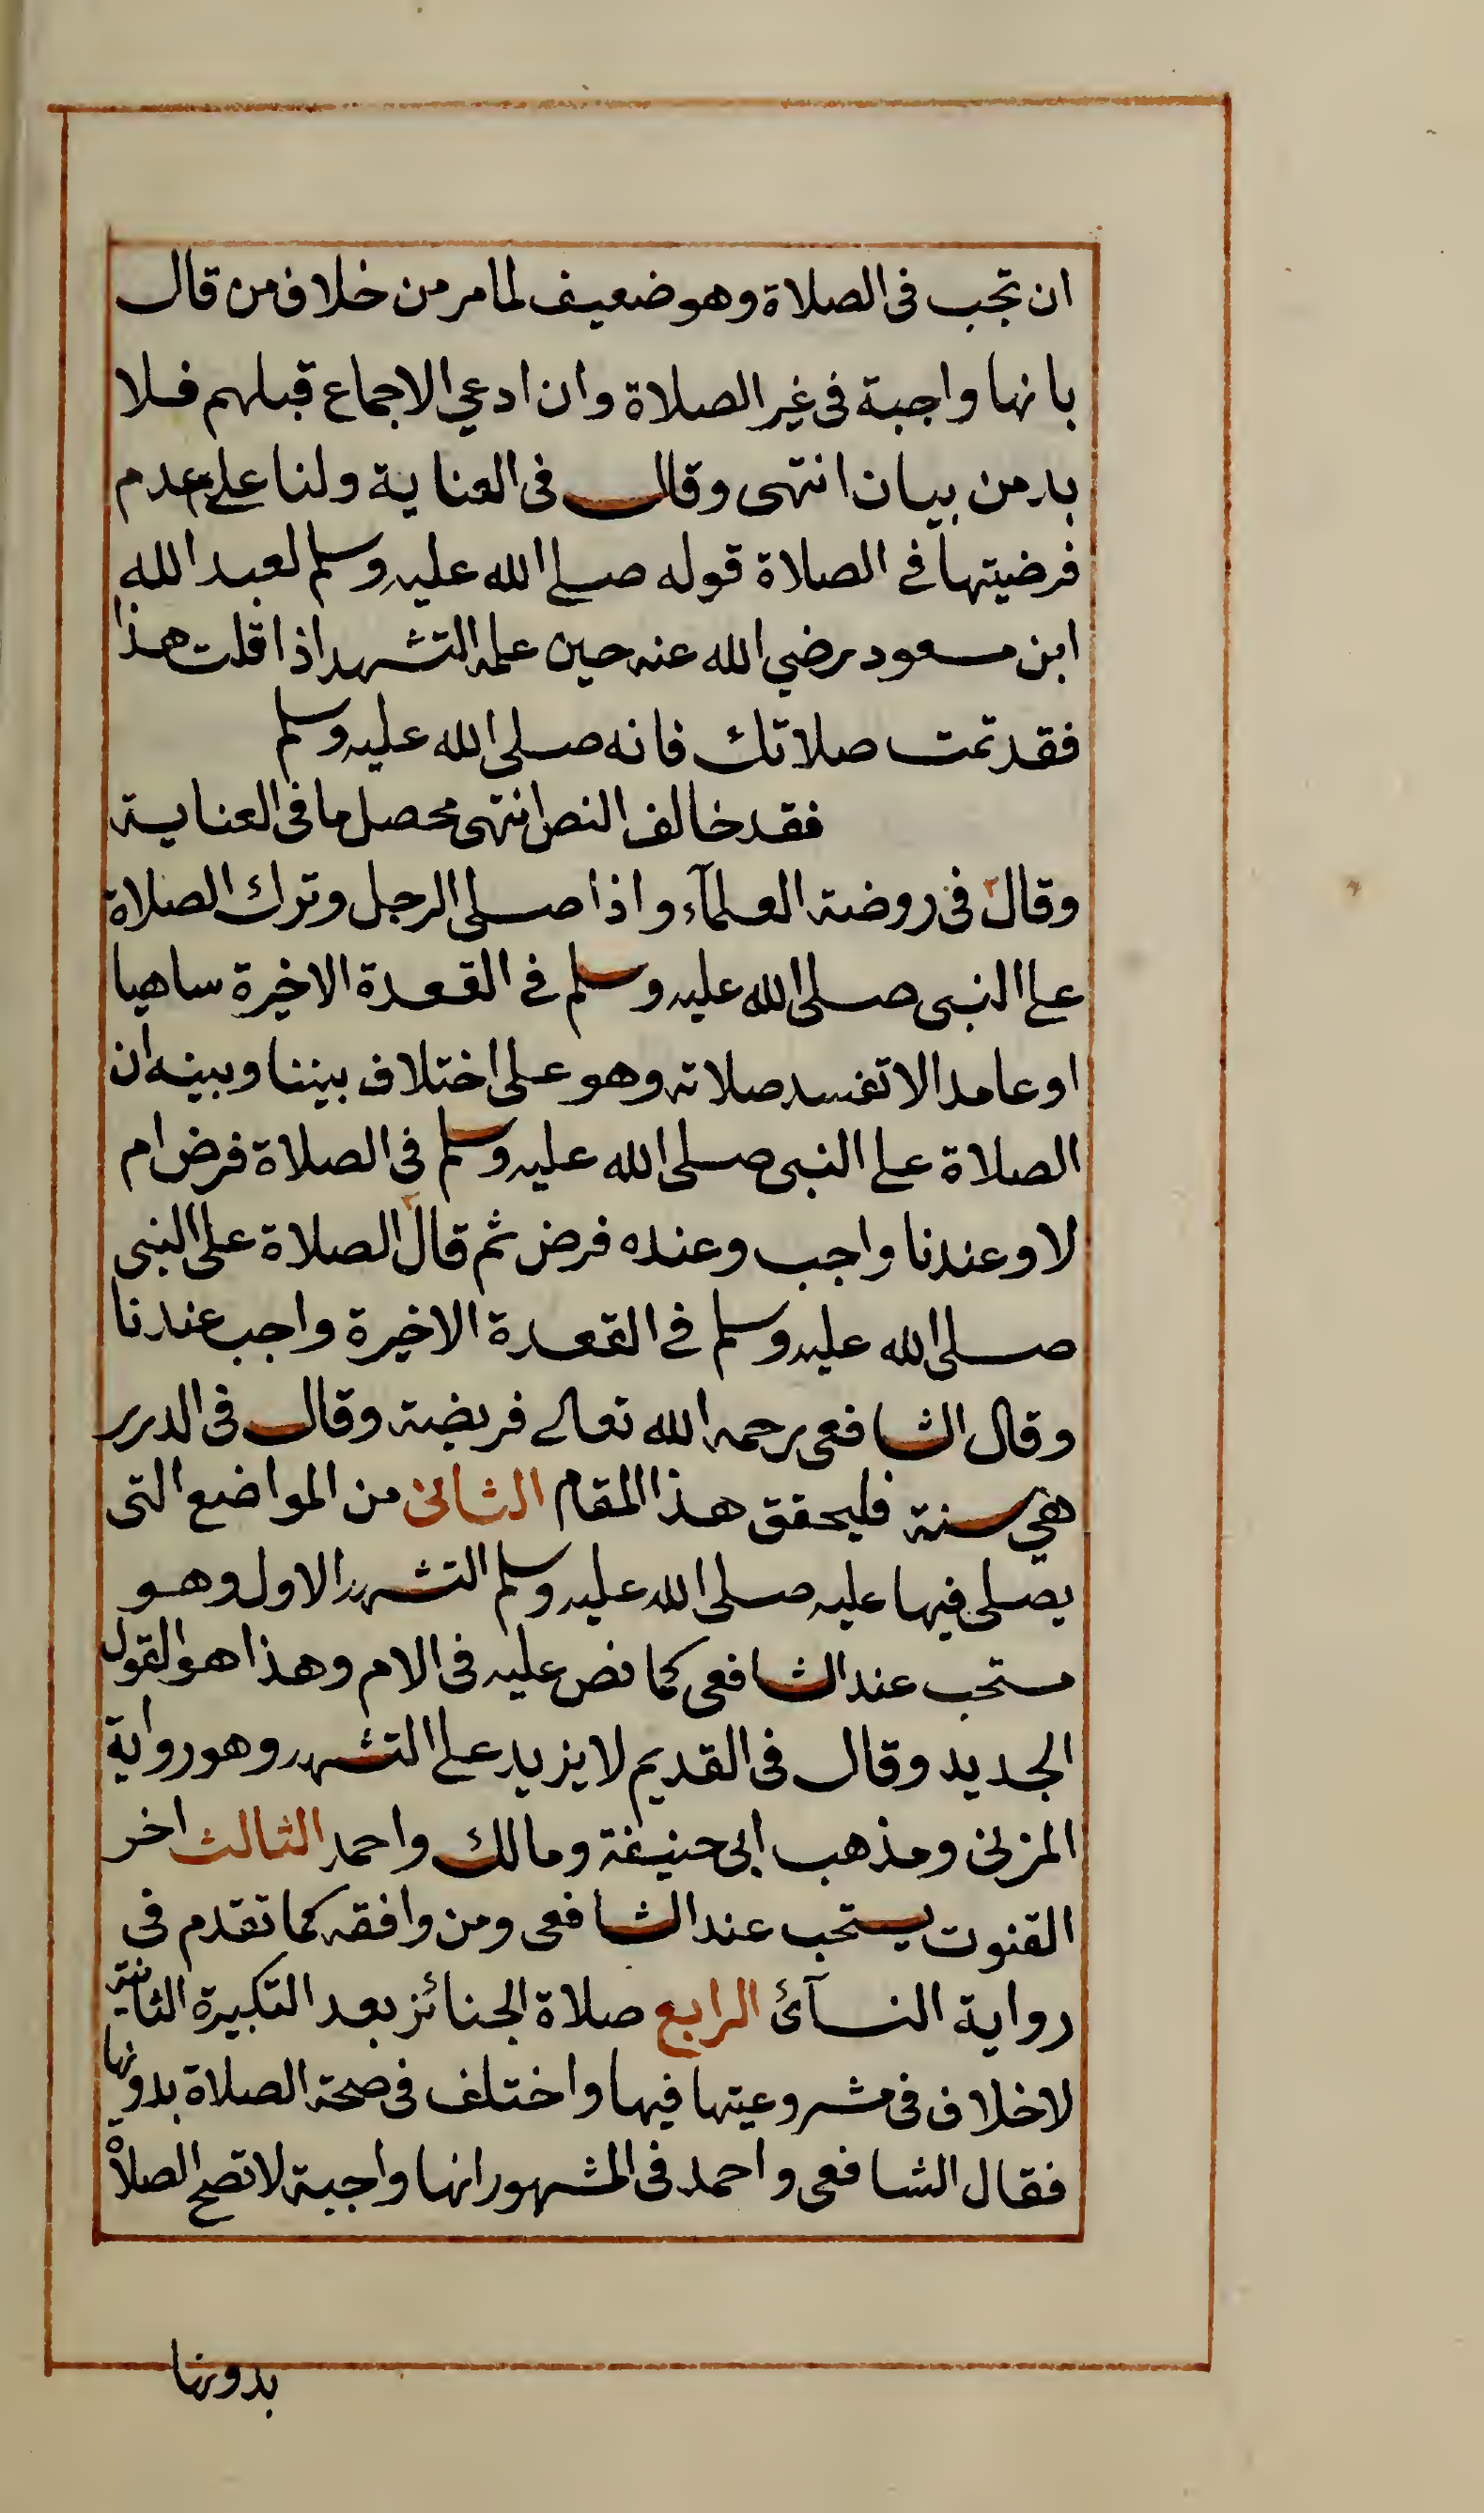 ان تجب فى الصلاة وهو ضعيف لما مر من خلاف من قال
بانها واجبة فى غير الصلاة وان ادعي الاجماع قبلهم فلا
بد من بيان انتهى وقال فى العناية ولنا على عدم
فرضيتها في الصلاة قوله صلى الله عليه وسلم لعبد الله
ابن مسعود رضي الله عنه حين علمه التشهد اذا قلت هذا
فقد تمت صلاتك فانه صلى الله عليه وسلم
فقد خالف النص انتهى محصل ما فى العناية
وقال فى روضة العلمآء واذا صلى الرجل وترك الصلاة
على النبى صلى الله عليه وسلم في القعدة الاخيرة ساهيا
او عامدا لا تفسد صلاته وهو على اختلاف بيننا وبينه ان
الصلاة على النبى صلى الله عليه وسلم فى الصلاة فرض ام
لا وعندنا واجب وعنده فرض ثم قال الصلاة على النبى
صلى الله عليه وسلم في القعدة الاخيرة واجب عندنا
وقال الشافعى رحمه الله تعالى فريضة وقال فى الدرر
هي سنة فليحقق هذا المقام الثانى من المواضع التى
يصلى فيها عليه صلى الله عليه وسلم التشهد الاول وهو
مستحب عند الشافعى كما نص عليه فى الام وهذا هو القول
الجديد وقال فى القديم لا يزيد على التشهد وهو رواية
المزنى ومذهب ابى حنيفة ومالك واحمد الثالث اخر
القنوت يستحب عند الشافعى ومن وافقه كما تقدم فى
رواية النسآئ الرابع صلاة الجنائز بعد التكبيرة الثانية
لا خلاف فى مشروعيتها فيها واختلف فى صحة الصلاة بدونها
فقال الشافعى واحمد فى المشهور انها واجبة لا تصح الصلاة
بدونها